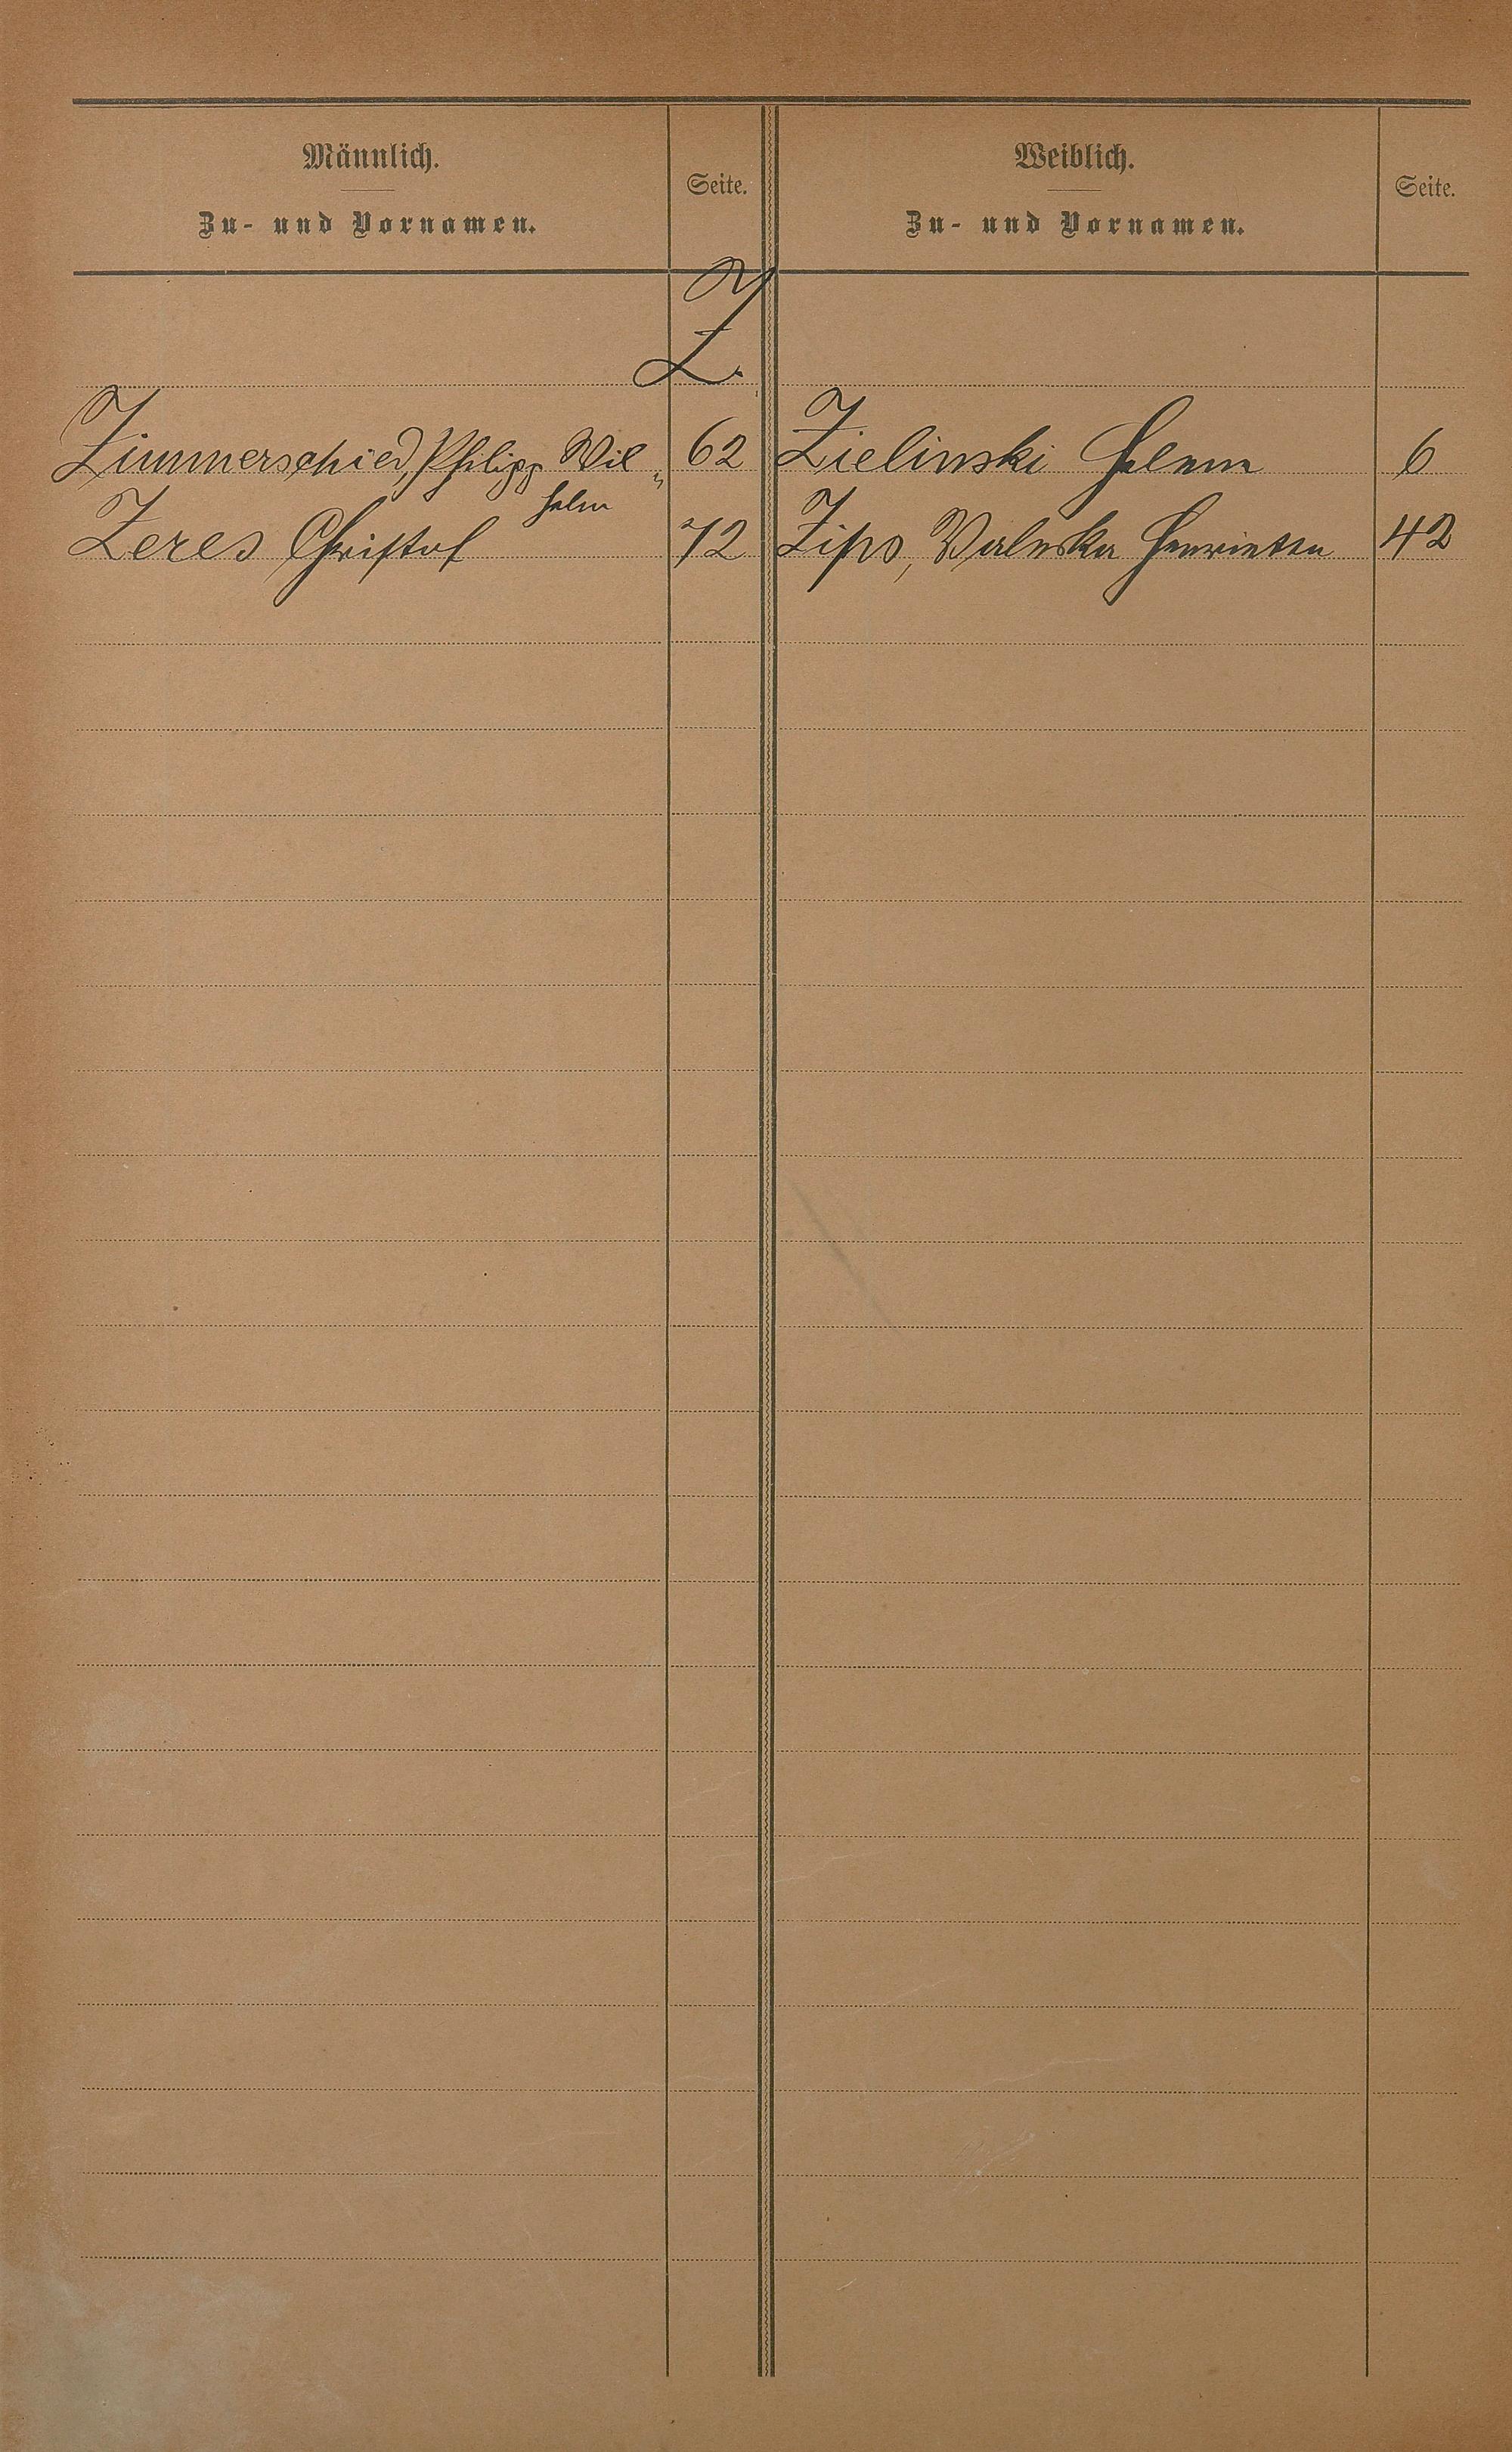 Männlich.
Zu- und Vornamen.
Seite.
Weiblich.
Zu- und Vornamen.
Seite.
Z.
Zimmerschied, Philipp Wil„ 62 Zielinski Helene 6
helm
Zeres Christof 72 Zips, Valeska Henriette 42